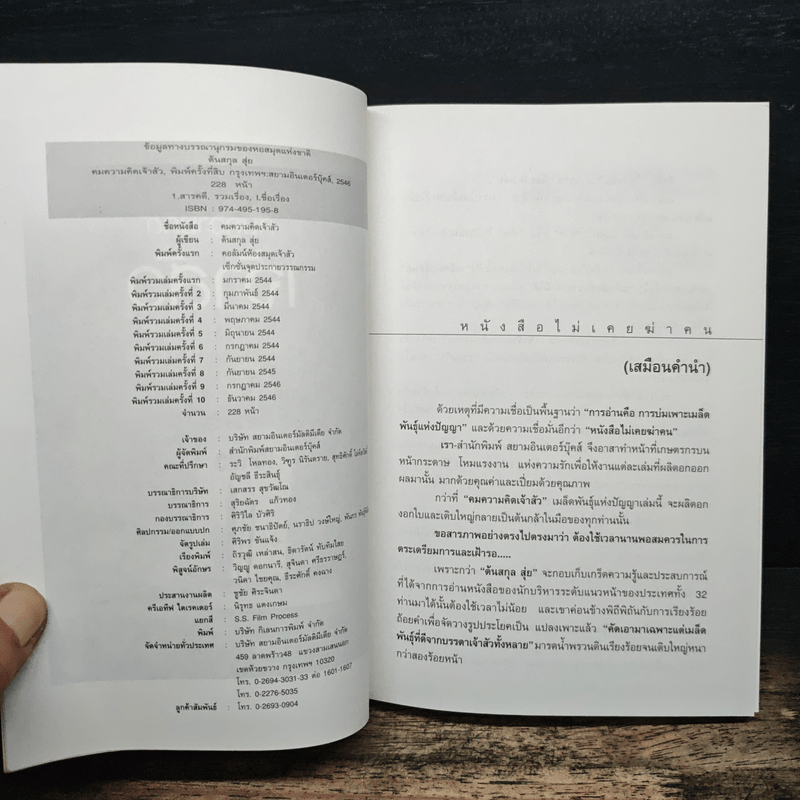 ข้อมูลทางบรรณานุกรมของหอสมุดแห่งชาติ
ต้นสกุล สุ่ย
คมความคิดเจ้าสัว, พิมพ์ครั้งที่สิบ กรุงเทพฯ:สยามอินเตอร์บุ๊คส์, 2546
228 หน้า
1.สารคดี, รวมเรื่อง, I.ชื่อเรื่อง
ISBN : 974-495-195-8
ชื่อหนังสือ : คมความคิดเจ้าสัว
ผู้เขียน : ต้นสกุล สุ่ย
พิมพ์ครั้งแรก : คอลัมน์ห้องสมุดเจ้าสัว
เซ็กชั่นจุดประกายวรรณกรรม
พิมพ์รวมเล่มครั้งแรก : มกราคม 2544
พิมพ์รวมเล่มครั้งที่ 2 : กุมภาพันธ์ 2544
พิมพ์รวมเล่มครั้งที่ 3 : มีนาคม 2544
พิมพ์รวมเล่มครั้งที่ 4 : พฤษภาคม 2544
พิมพ์รวมเล่มครั้งที่ 5 : มิถุนายน 2544
พิมพ์รวมเล่มครั้งที่ 6 : กรกฎาคม 2544
พิมพ์รวมเล่มครั้งที่ 7 : กันยายน 2544
พิมพ์รวมเล่มครั้งที่ 8 : กันยายน 2545
พิมพ์รวมเล่มครั้งที่ 9 : กรกฎาคม 2546
พิมพ์รวมเล่มครั้งที่ 10 : ธันวาคม 2546
จำนวน : 228 หน้า
เจ้าของ : บริษัท สยามอินเตอร์มัลติมีเดีย จำกัด
ผู้จัดพิมพ์ : สำนักพิมพ์สยามอินเตอร์บุ๊คส์
คณะที่ปรึกษา : ระวิ โหลทอง, วิฑูร นิรันตราย, สุทธิศักดิ์
อัญชลี ธีระสินธุ์
บรรณาธิการบริษัท : เสกสรร สุขวัฒโน
บรรณาธิการ : สุริยฉัตร แก้วทอง
กองบรรณาธิการ : ศิริวิไล บัวศิริ
ศิลปกรรม/ออกแบบปก : ศุภชัย ชนาธิปัตย์, นราธิป วงษ์ใหญ่,
จัดรูปเล่ม : ศิริพร ขันแจ้ง
เรียงพิมพ์ : ถิรวุฒิ เหล่าสน, ธิดารัตน์ ทับทิมใสย
พิสูจน์อักษร : วิญญู ดอกนารี, สุจินดา ศรีธรราษฎร์,
วนิดา ไชยคุณ, ธีระศักดิ์ คงฉาง
ประสานงานผลิต : ชูชัย ศิระจินดา
ครีเอทีฟ ไดเรคเตอร์ : นิรุทธ แดงเกษม
แยกสี : S.S. Film Process
พิมพ์ : บริษัท กิเลนการพิมพ์ จำกัด
จัดจำหน่ายทั่วประเทศ : บริษัท สยามอินเตอร์มัลติมีเดีย จำกัด
459 ลาดพร้าว48 แขวงสามเสนนอก
เขตห้วยขวาง กรุงเทพฯ 10320
โทร. 0-2694-3031-33 ต่อ 1601-1607
โทร. 0-2276-5035
ลูกค้าสัมพันธ์ : โทร. 0-2693-0904
หนังสือไม่เคยฆ่าคน
(เสมือนคำนำ)
ด้วยเหตุที่มีความเชื่อเป็นพื้นฐานว่า “การอ่านคือ การบ่มเพาะเมล็ด
พันธุ์แห่งปัญญา” และด้วยความเชื่อมั่นอีกว่า “หนังสือไม่เคยฆ่าคน”
เรา-สำนักพิมพ์ สยามอินเตอร์บุ๊คส์ จึงอาสาทำหน้าที่เกษตรกรบน
หน้ากระดาษ โหมแรงงาน แห่งความรักเพื่อให้งานแต่ละเล่มที่ผลิดอกออก
ผลมานั้น มากด้วยคุณค่าและเปี่ยมด้วยคุณภาพ
กว่าที่ “คมความคิดเจ้าสัว” เมล็ดพันธุ์แห่งปัญญาเล่มนี้ จะผลิดอก
งอกใบและเติบใหญ่กลายเป็นต้นกล้าในมือของทุกท่านนั้น
ขอสารภาพอย่างตรงไปตรงมาว่า ต้องใช้เวลานานพอสมควรในการ
ตระเตรียมการและเฝ้ารอ.....
เพราะกว่า “ต้นสกุล สุ่ย” จะกอบเก็บเกร็ดความรู้และประสบการณ์
ที่ได้จากการอ่านหนังสือของนักบริหารระดับแนวหน้าของประเทศทั้ง 32
ท่านมาได้นั้นต้องใช้เวลาไม่น้อย และเขาค่อนข้างพิถีพิถันกับการเรียงร้อย
ถ้อยคำเพื่อจัดวางรูปประโยคเป็น แปลงเพาะแล้ว “คัดเอามาเฉพาะแต่เมล็ด
พันธุ์ที่ดีจากบรรดาเจ้าสัวทั้งหลาย” มารดน้ำพรวนดินเรียงร้อยจนเติบใหญ่หนา
กว่าสองร้อยหน้า